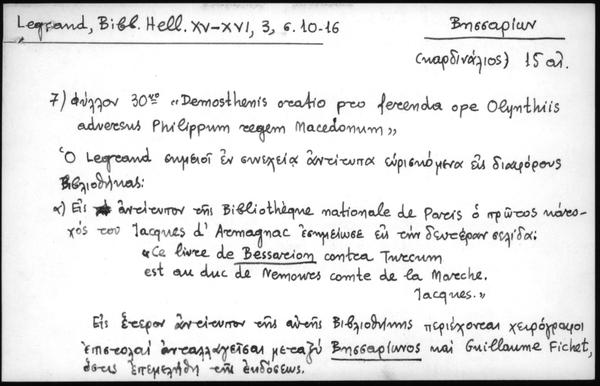 Legrand, Bibl. Hell. XV-XVI, 3, σ. 10-16
Βησσαρίων
(καρδινάλιος) 15 αἰ.
7) Φύλλον 30νο «Demosthenis oratio pro ferenda ope Olynthiis
adversus Philippum regem Macedonum»
Ὁ Legrand σημειοῖ ἐν συνεχείᾳ ἀντίτυπα εὑρισκόμενα εἰς διαφόρους
Βιβλιοθήκας:
α) Εἰς ἀντίτυπον τῆς Bibliothèque nationale de Paris ὁ πρῶτος κάτο-
χός του Jacques d'Armagnac ἐσημείωσε εἰς τὴν δευτέραν σελίδα:
«Ce livre de Bessarion contra Turcum
est au duc de Nemours comte de la Marche.
Jacques.»
Εἰς ἕτερον ἀντίτυπον τῆς αὐτῆς Βιβλιοθήκης περιέχονται χειρόγραφοι
ἐπιστολαὶ ἀνταλλαγεῖσαι μεταξὺ Βησσαρίωνος καὶ Guillaume Fichet,
ὅστις ἐπεμελήθη τῆς ἐκδόσεως.